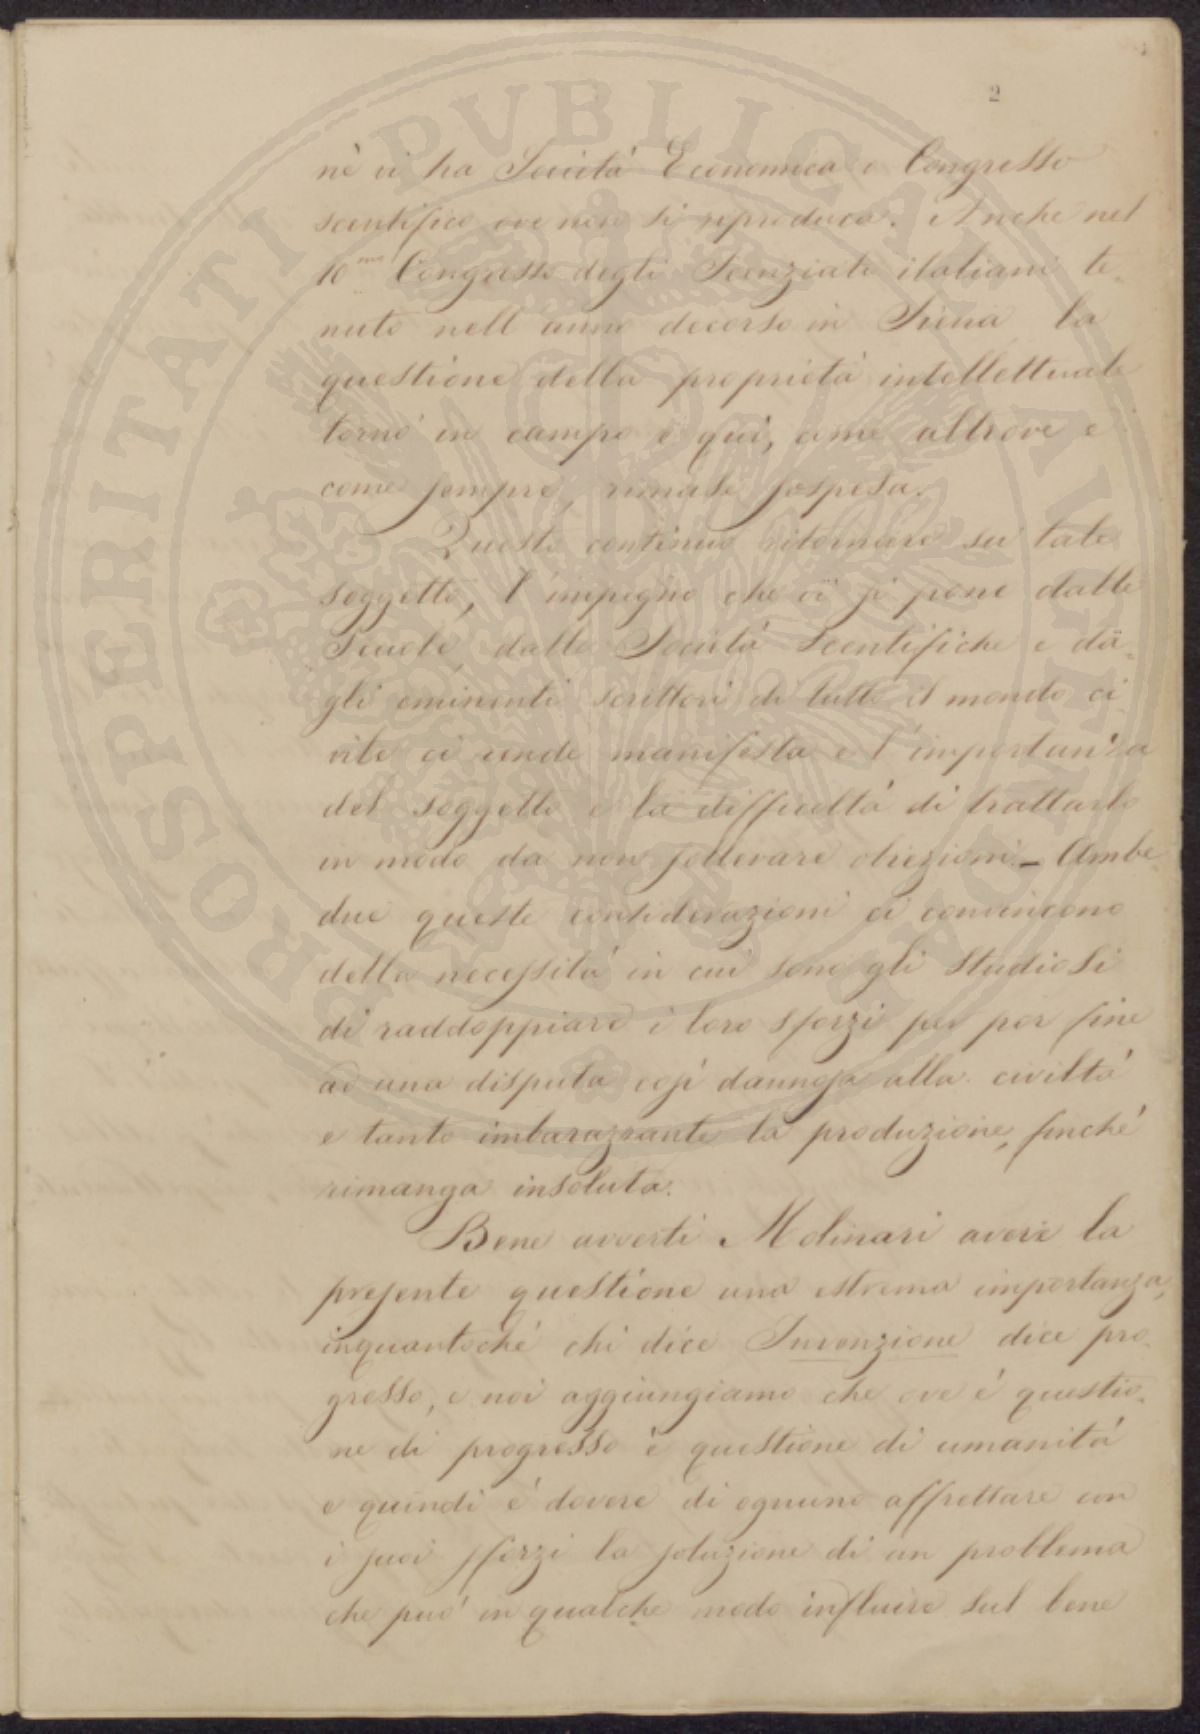 2
nè vi ha Società Economica o Congresso
scentifico ove non si riproduca. Anche nel
10mo Congresso degli Scenziati italiani te-
nuto nell'anno decorso in Siena la
questione della proprietà intellettuale
tornò in campo e qui, come altrove e
come sempre, rimase sospesa.
Questo continuo ritornare su tale
soggetto, l'impegno che vi si pone dalle
Scuole, dalle Società Scentifiche e da-
gli eminenti scrittori di tutto il mondo ci-
vile ci rende manifesta e l'importanza
del soggetto e la difficoltà di trattarlo
in modo da non sollevare obiezioni. – Ambe-
due queste considerazioni ci convincono
della necessità in cui sono gli studiosi
di raddoppiare i loro sforzi per por fine
ad una disputa così dannosa alla civiltà
e tanto imbarazzante la produzione, finché
rimanga insoluta.
Bene avvertì Molinari avere la
presente questione una estrema importanza,
inquantoché chi dice Invenzione dice pro-
gresso, e noi aggiungiamo che ove è questio-
ne di progresso è questione di umanità
e quindi è dovere di ognuno affrettare con
i suoi sforzi la soluzione di un problema
che può in qualche modo influire sul bene
PROSPERITATI PVBLICAE AVGENDAE